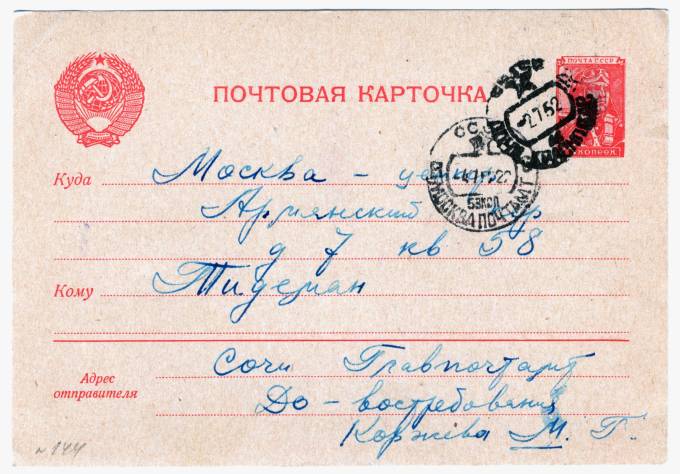 ПОЧТА СССР
ПОЧТОВАЯ КАРТОЧКА
-2.7.52
КОПЕЕК
Куда Москва - центр
МОСКВА ПОЧТАМТ
Армянский пер
д 7 кв 58
Кому Тидеман
Адрес отправителя
Сочи Главпочтамт
До-востребования
Коржева М. Г.
№ 144